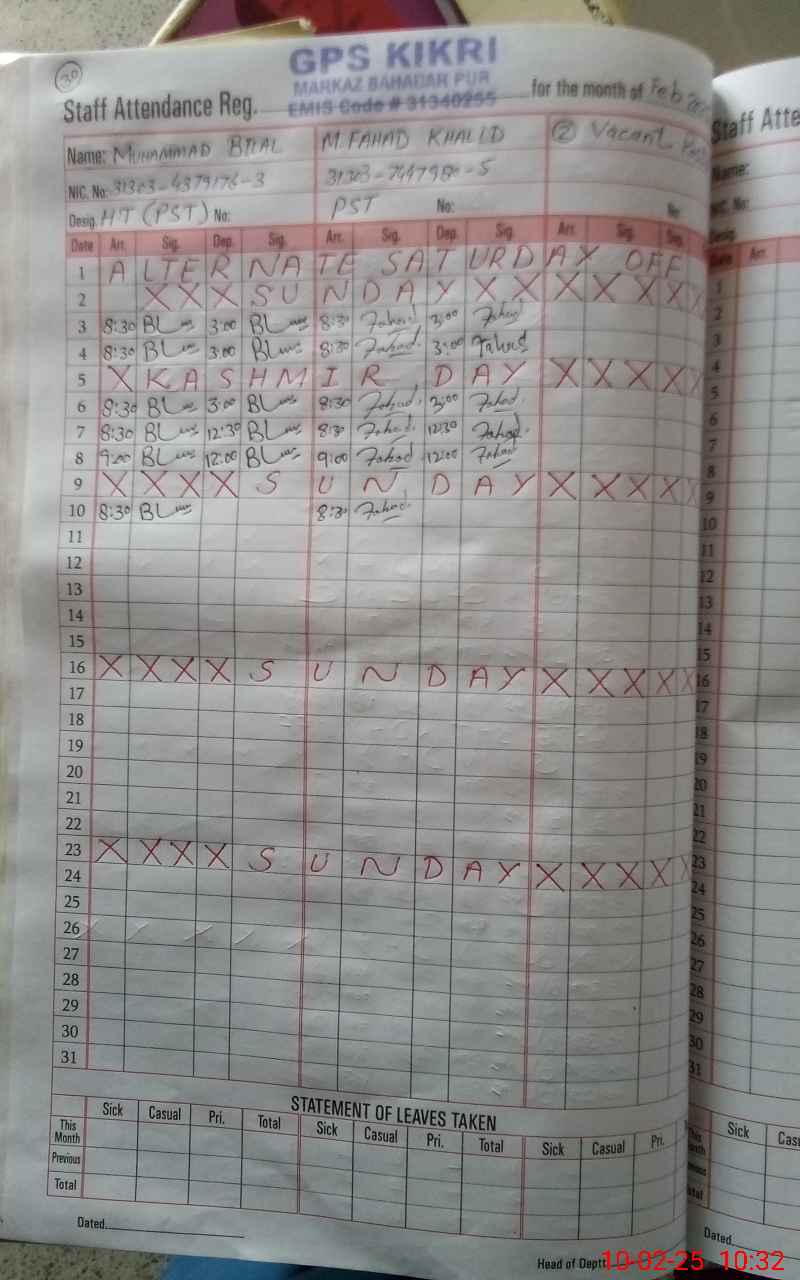 30
GPS KIKRI
MARKAZ BAHADAR PUR
EMIS Code # 31340255
Staff Attendance Reg. for the month of Feb
Name: MUHAMMAD BILAL M. FAHAD KHALID ② Vacant
NIC. No: 31303-4379176-3 31303-7447980-5
Desig. HT (PST) No: PST No: No:
Date Arr. Sig. Dep. Sig. Arr. Sig. Dep. Sig. Arr. Sig. Dep.
1 ALTERNATE SATURDAY OFF
2 X X X SUNDAY X X X X X X
3 8:30 3:00 8:30 Fahad 3:00 Fahad
4 8:30 3:00 8:30 Fahad 3:00 Fahad
5 X KASHMIR DAY X X X X X
6 8:30 3:00 8:30 Fahad 3:00 Fahad
7 8:30 12:30 8:30 Fahad 12:30 Fahad
8 9:00 12:00 9:00 Fahad 12:00 Fahad
9 X X X X SUNDAY X X X X X
10 8:30 8:30 Fahad
11
12
13
14
15
16 X X X X SUNDAY X X X X X
17
18
19
20
21
22
23 X X X X SUNDAY X X X X X
24
25
26
27
28
29
30
31
STATEMENT OF LEAVES TAKEN
Sick Casual Pri. Total Sick Casual Pri. Total Sick Casual Pri.
This Month
Previous
Total
Dated
Head of Deptt
Staff Atte
Name:
NIC. No:
Desig.
Date Arr.
1
2
3
4
5
6
7
8
9
10
11
12
13
14
15
16
17
18
19
20
21
22
23
24
25
26
27
28
29
30
31
Sick Cas
Dated
10-02-25 10:32